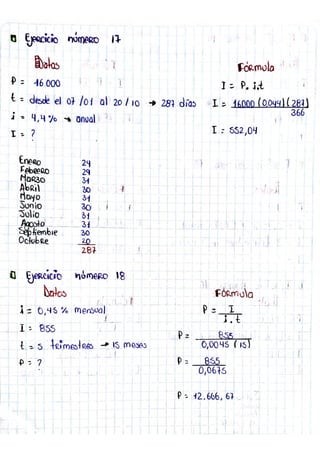 Ejercicio número 17
Datos
Fórmula
P = 16 000
I = P. i.t
t = desde el 07 /01 al 20 / 10 → 287 días
I = 16000 (0.044) (287)
366
i = 4,4 % → anual
I = 552,04
I = ?
Enero 24
Febrero 29
Marzo 31
Abril 30
Mayo 31
Junio 30
Julio 31
Agosto 31
Septiembre 30
Octubre 20
287
Ejercicio número 18
Datos
Fórmula
i = 0,45 % mensual
P = I
i . t
I = 855
P = 855
0,0045 (15)
t = 5 trimestres → 15 meses
P = ?
P = 855
0,0675
P = 12.666, 67